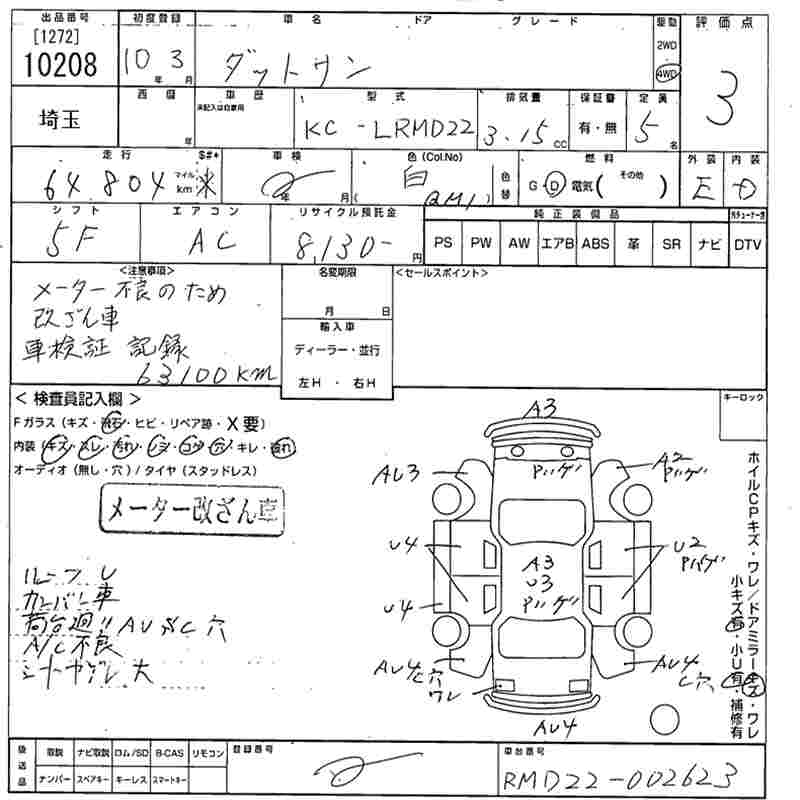 出品番号 初度登録 車名 ドア グレード 駆動 評価点
[1272]
10208
10年 3月
ダットサン
2WD
4WD
3
埼玉
西暦 車歴 型式 排気量 保証書 定員
未記入は自家用
年
KC-LRMD22
3.15CC
有・無
5名
走行 $#* 車検 色(Col.No) 色替 燃料 外装 内装
64804 マイル km 米
年 月
白
(QM1)
G D 電気( その他 )
E D
シフト エアコン リサイクル預託金 純正装備品
5F
AC
8,130-円
PS PW AW エアB ABS 革 SR ナビ DTV
<注意事項> 名変期限 <セールスポイント>
メーター不良のため
改ざん車
車検証 記録
63100km
月 日
輸入車
ディーラー・並行
左H・右H
<検査員記入欄>
キーロック
Fガラス(キズ・飛石・ヒビ・リペア跡・X要)
内装(キズ・スレ・汚れ・シミ・コゲ・穴・キレ・破れ)
オーディオ(無し・穴)/タイヤ(スタッドレス)
メーター改ざん車
ルーフ U
カンバン車
荷台廻リ AU C 穴
A/C不良
シートヤブレ大
A3
Pハゲ
AU3
A2
Pハゲ
U4
U2
Pハゲ
A3
U3
Pハゲ
U4
AU4
C穴
ワレ
AU4
C穴
AU4
ホイルCPキズ・ワレ/ドアミラーキズ・ワレ
小キズ有・小U有・補修有
後送品 取説 ナビ取説 ロム/SD B-CAS リモコン 登録番号 車台番号
ナンバー スペアキー キーレス スマートキー
RMD22-002623